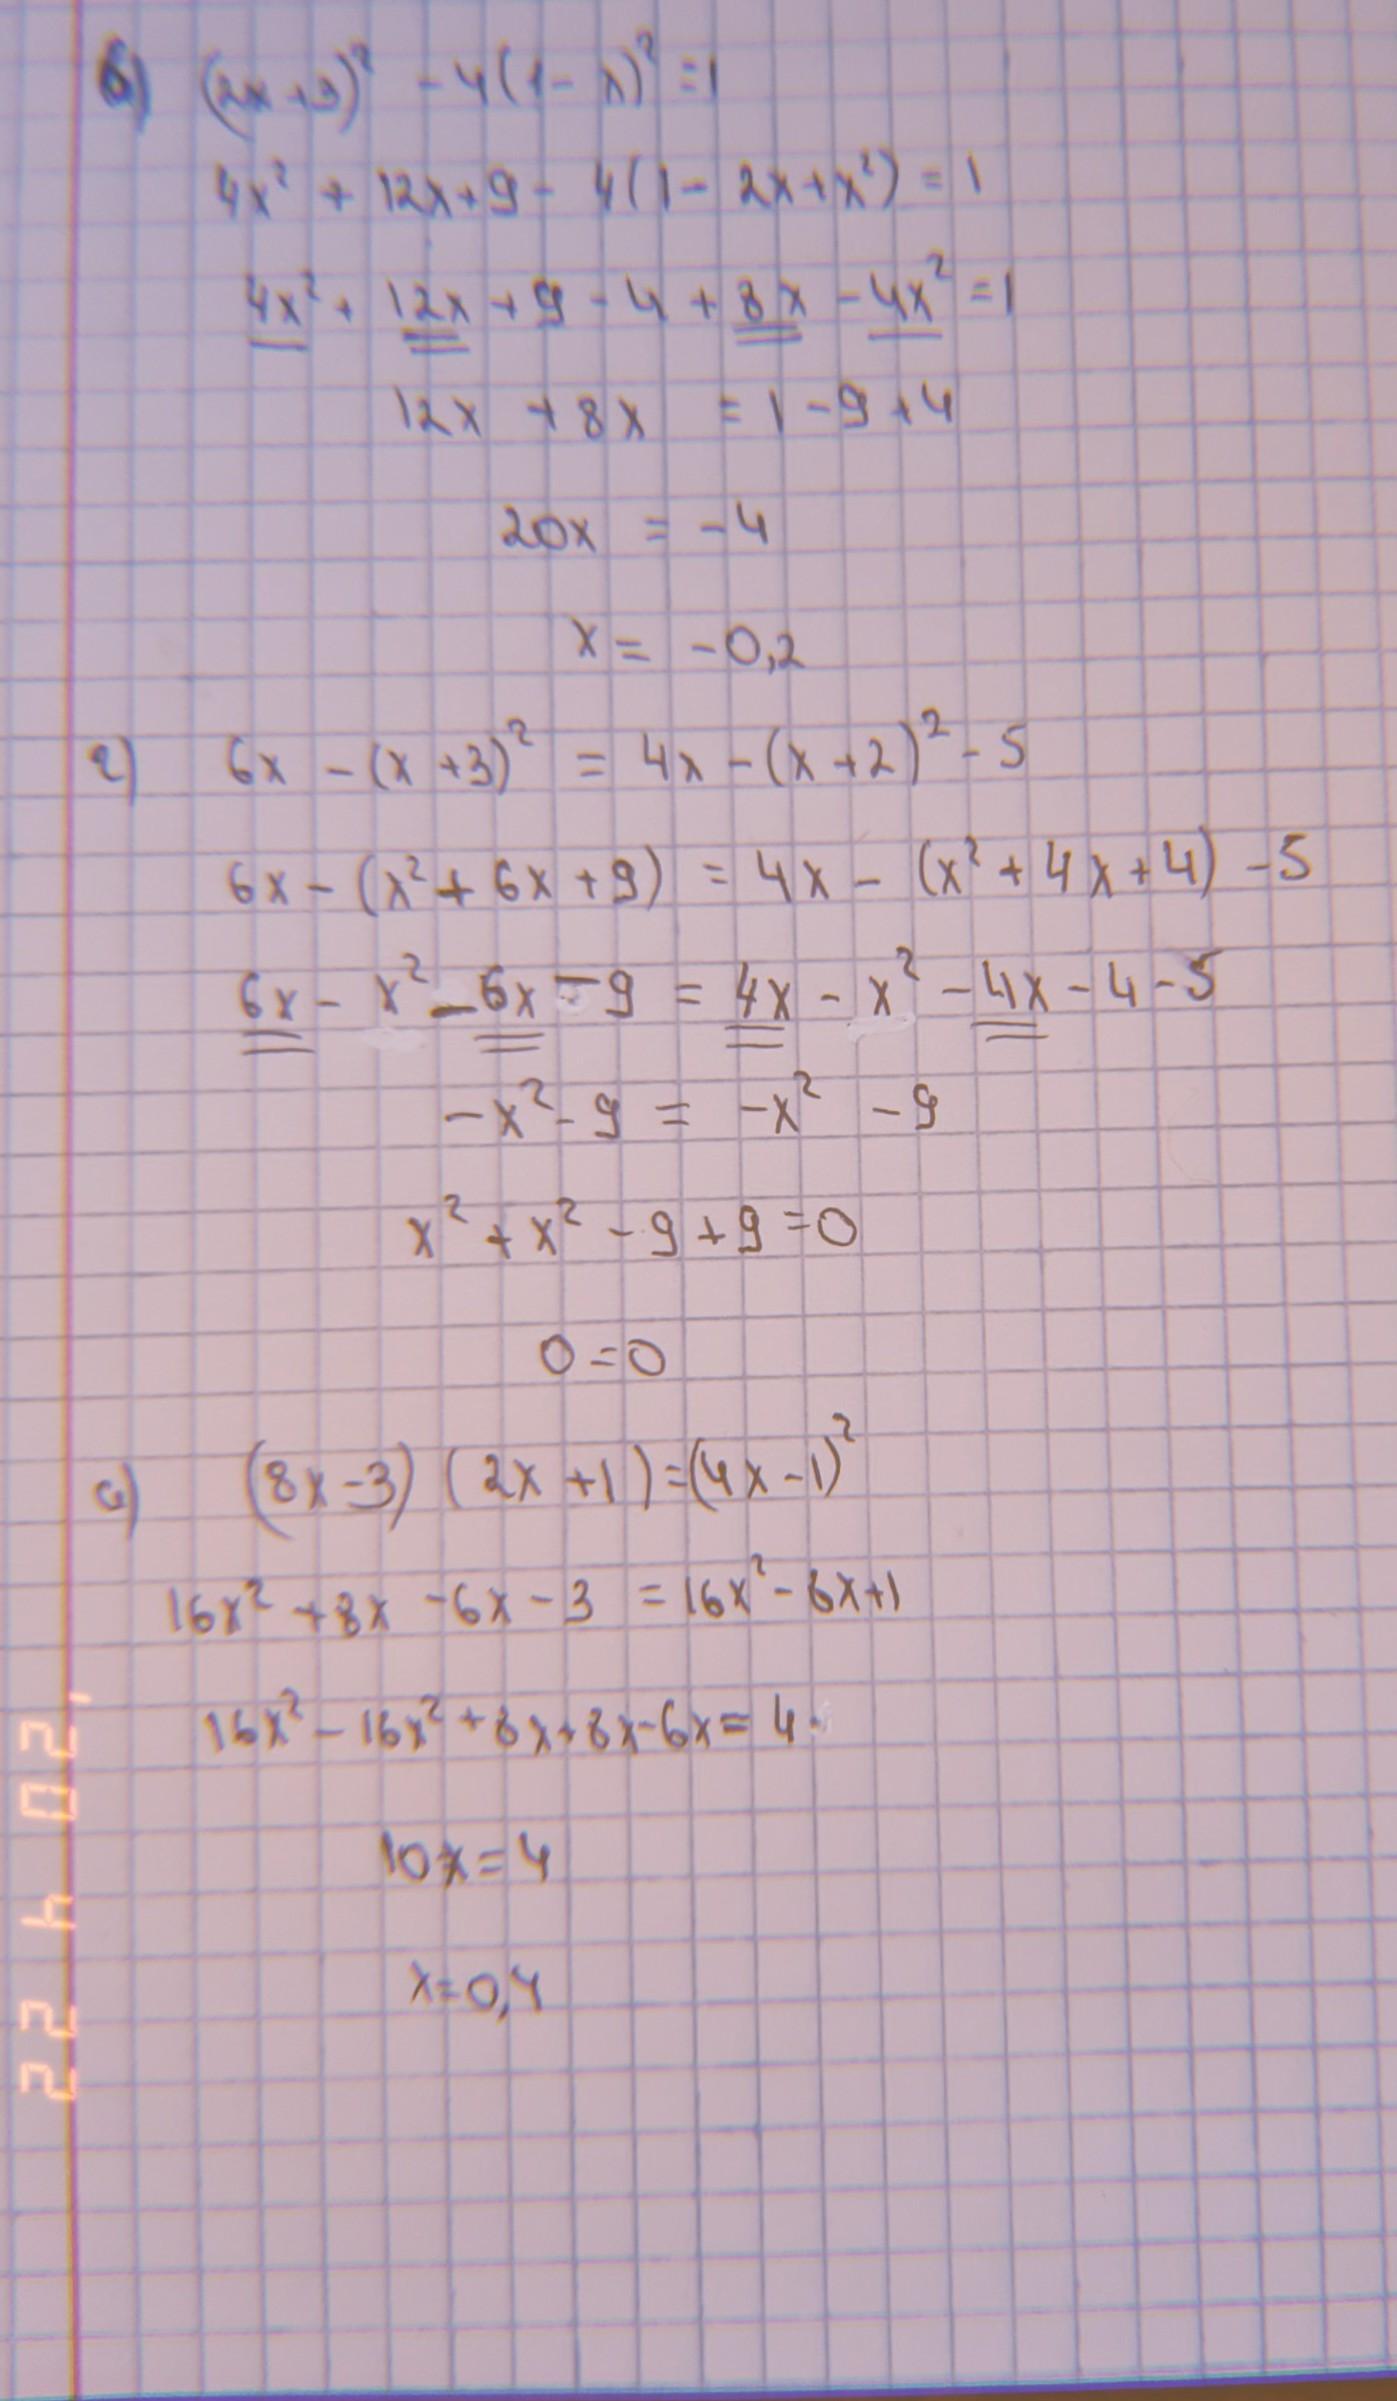 б) (2x+3)² - 4(1-x)² = 1
4x² + 12x + 9 - 4(1 - 2x + x²) = 1
4x² + 12x + 9 - 4 + 8x - 4x² = 1
12x + 8x = 1 - 9 + 4
20x = -4
x = -0,2
г) 6x - (x+3)² = 4x - (x+2)² - 5
6x - (x² + 6x + 9) = 4x - (x² + 4x + 4) - 5
6x - x² - 6x - 9 = 4x - x² - 4x - 4 - 5
-x² - 9 = -x² - 9
x² + x² - 9 + 9 = 0
0 = 0
а) (8x-3) (2x+1) = (4x-1)²
16x² + 8x - 6x - 3 = 16x² - 8x + 1
16x² - 16x² + 8x + 8x - 6x = 4
10x = 4
x = 0,4
22 4 '02